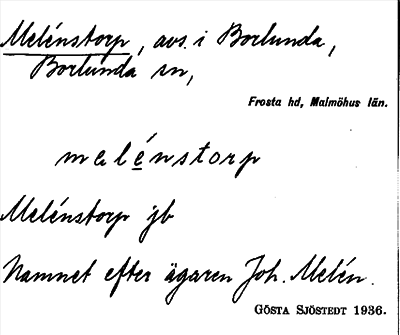 Melénstorp, avs. i Borlunda,
Borlunda sn,
Frosta hd, Malmöhus län.
melénstorp
Melénstorp jb
Namnet efter ägaren Joh. Melén.
GÖSTA SJÖSTEDT 1936.